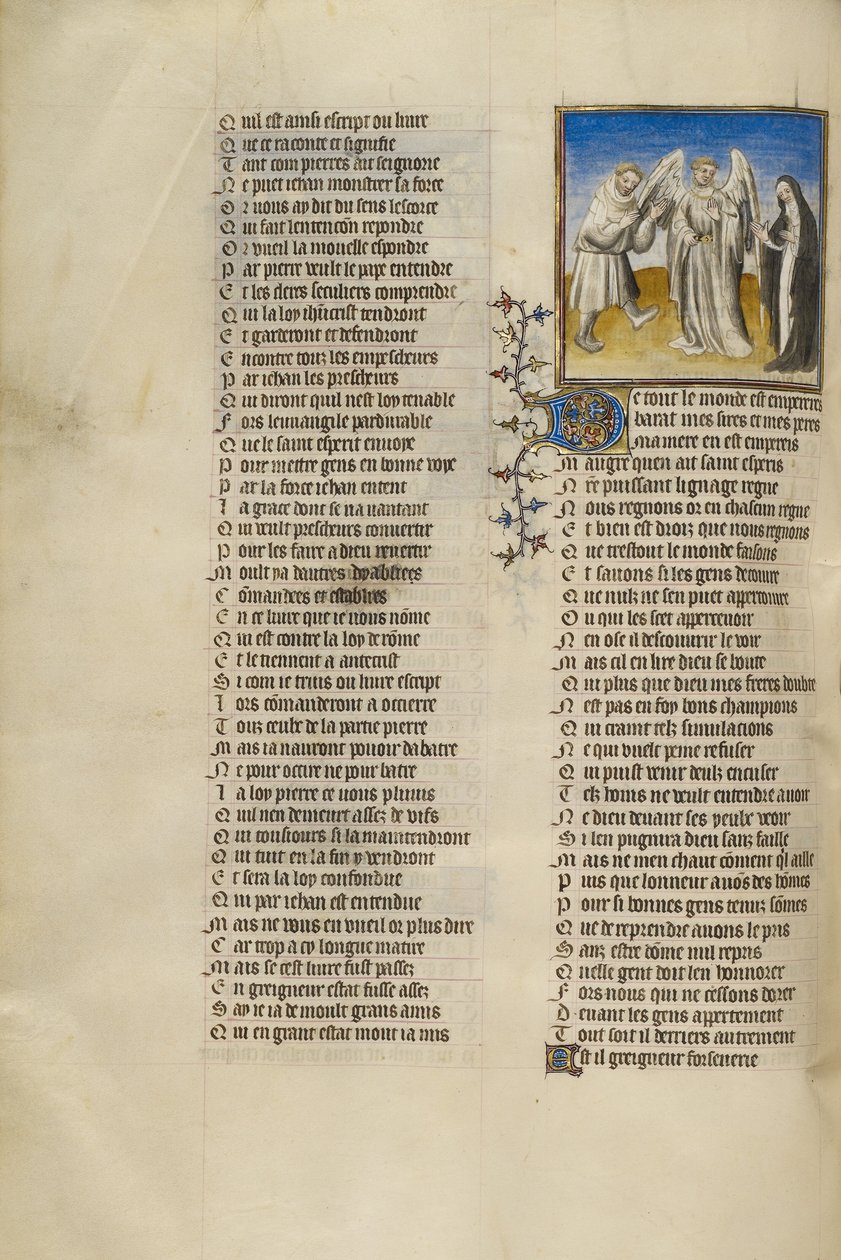 Quil est ainsi escript ou liure
Que ce raconte et signifie
Tant com pierres ait seignorie
Ne puet iehan monstrer sa force
Or vous ay dit du sens lescorce
Qui fait lentencōn repondre
Or vueil la mouelle espondre
Par pierre veult le pape entendre
Et les clers seculiers comprendre
Qui la loy ihūcrist tendront
Et garderont et defendront
Encontre touz les empescheurs
Par iehan les prescheurs
Qui diront quil nest loy tenable
Fors leuuangile pardurable
Que le saint esperit enuoye
Pour mettre gens en bonne voye
Par la force iehan entent
La grace dont se va vantant
Qui veult prescheurs conuertir
Pour les faire a dieu reuertir
Moult ya dautres dyablies
Cōmandees et establies
En ce liure que ie vous nōme
Qui est contre la loy de rōme
Et se tiennent a antecrist
Si com ie truis ou liure escript
Lors cōmanderont a occierre
Touz ceulx de la partie pierre
Mais ia nauront pouoir dabatre
Ne pour occire ne pour batre
La loy pierre ce vous pluuis
Quil nen demeure assez de vifs
Qui tousiours si la maintendront
Que tuit en la fin y vendront
Et sera la loy confondue
Qui par iehan est entendue
Mais ne vous en vueil or plus dire
Car trop a cy longue matire
Mais se cest liure fust passez
En greigneur estat fusse assez
Say ie ia de moult grans amis
Qui en grant estat mont ia mis
De tout le monde est empereres
barat mes sires et mes peres
ma mere en est empereis
Maugre quen ait saint esperis
Nr̄e puissant lignage regne
Nous regnons or en chascun regne
Et bien est droiz que nous regnons
Que trestout le monde faisons
Et sauons si les gens deceuure
Que nulz ne sen puet apperceuure
Ou qui les scet apperceuoir
Nen ose il descouurir le voir
Mais cil en lire dieu se boute
Qui plus que dieu mes freres doubte
Nest pas en foy bons champions
Qui craint telz simulacions
Ne qui vuelt peine refuser
Qui puist venir deulz encuser
Telz homs ne veult entendre a voir
Ne dieu deuant ses yeulx veoir
Si len pugnira dieu sanz faille
Mais ne men chaut cōment ql aille
Puis que lonneur auōs des hōmes
Pour si bonnes gens tenuz sōmes
Que de reprendre auons le pris
Sanz estre dōme nul repris
Quelle gent doit len honnorer
Fors nous qui ne cessons dorer
Deuant les gens appertement
Tout soit il derriers autrement
Est il greigneur forsenerie